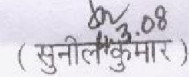 3.08
( सुनील कुमार )